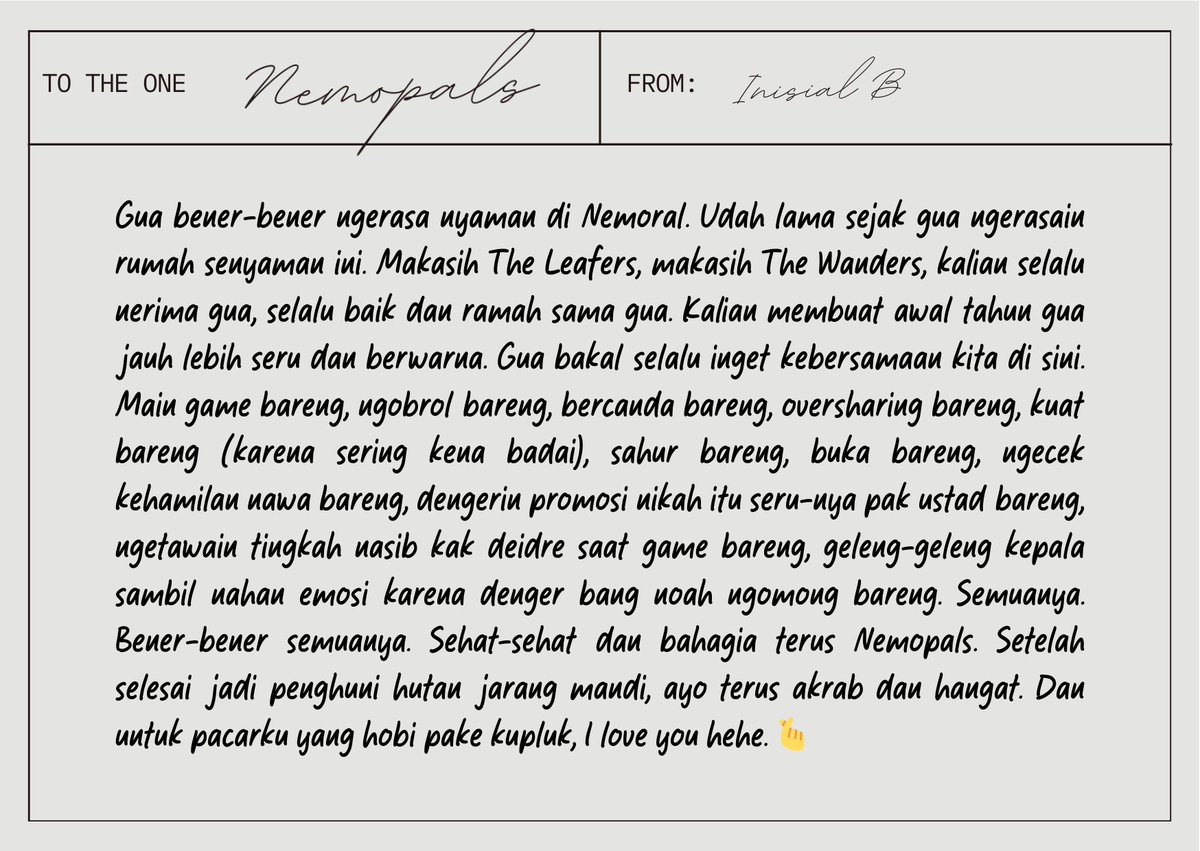 TO THE ONE Nemopals
FROM: Inisial B
Gua bener-bener ngerasa nyaman di Nemoral. Udah lama sejak gua ngerasain
rumah senyaman ini. Makasih The Leafers, makasih The Wanders, kalian selalu
nerima gua, selalu baik dan ramah sama gua. Kalian membuat awal tahun gua
jauh lebih seru dan berwarna. Gua bakal selalu inget kebersamaan kita di sini.
Main game bareng, ngobrol bareng, bercanda bareng, oversharing bareng, kuat
bareng (karena sering kena badai), sahur bareng, buka bareng, ngecek
kehamilan nawa bareng, dengerin promosi nikah itu seru-nya pak ustad bareng,
ngetawain tingkah nasib kak deidre saat game bareng, geleng-geleng kepala
sambil nahan emosi karena denger bang noah ngomong bareng. Semuanya.
Bener-bener semuanya. Sehat-sehat dan bahagia terus Nemopals. Setelah
selesai jadi penghuni hutan jarang mandi, ayo terus akrab dan hangat. Dan
untuk pacarku yang hobi pake kupluk, I love you hehe.